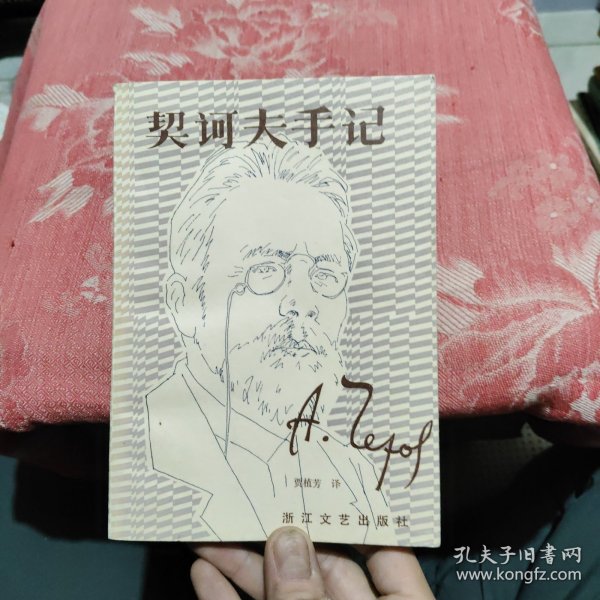 契诃夫手记
А. Чехов
贾植芳 译
浙江文艺出版社
孔夫子旧书网
www.kongfz.com